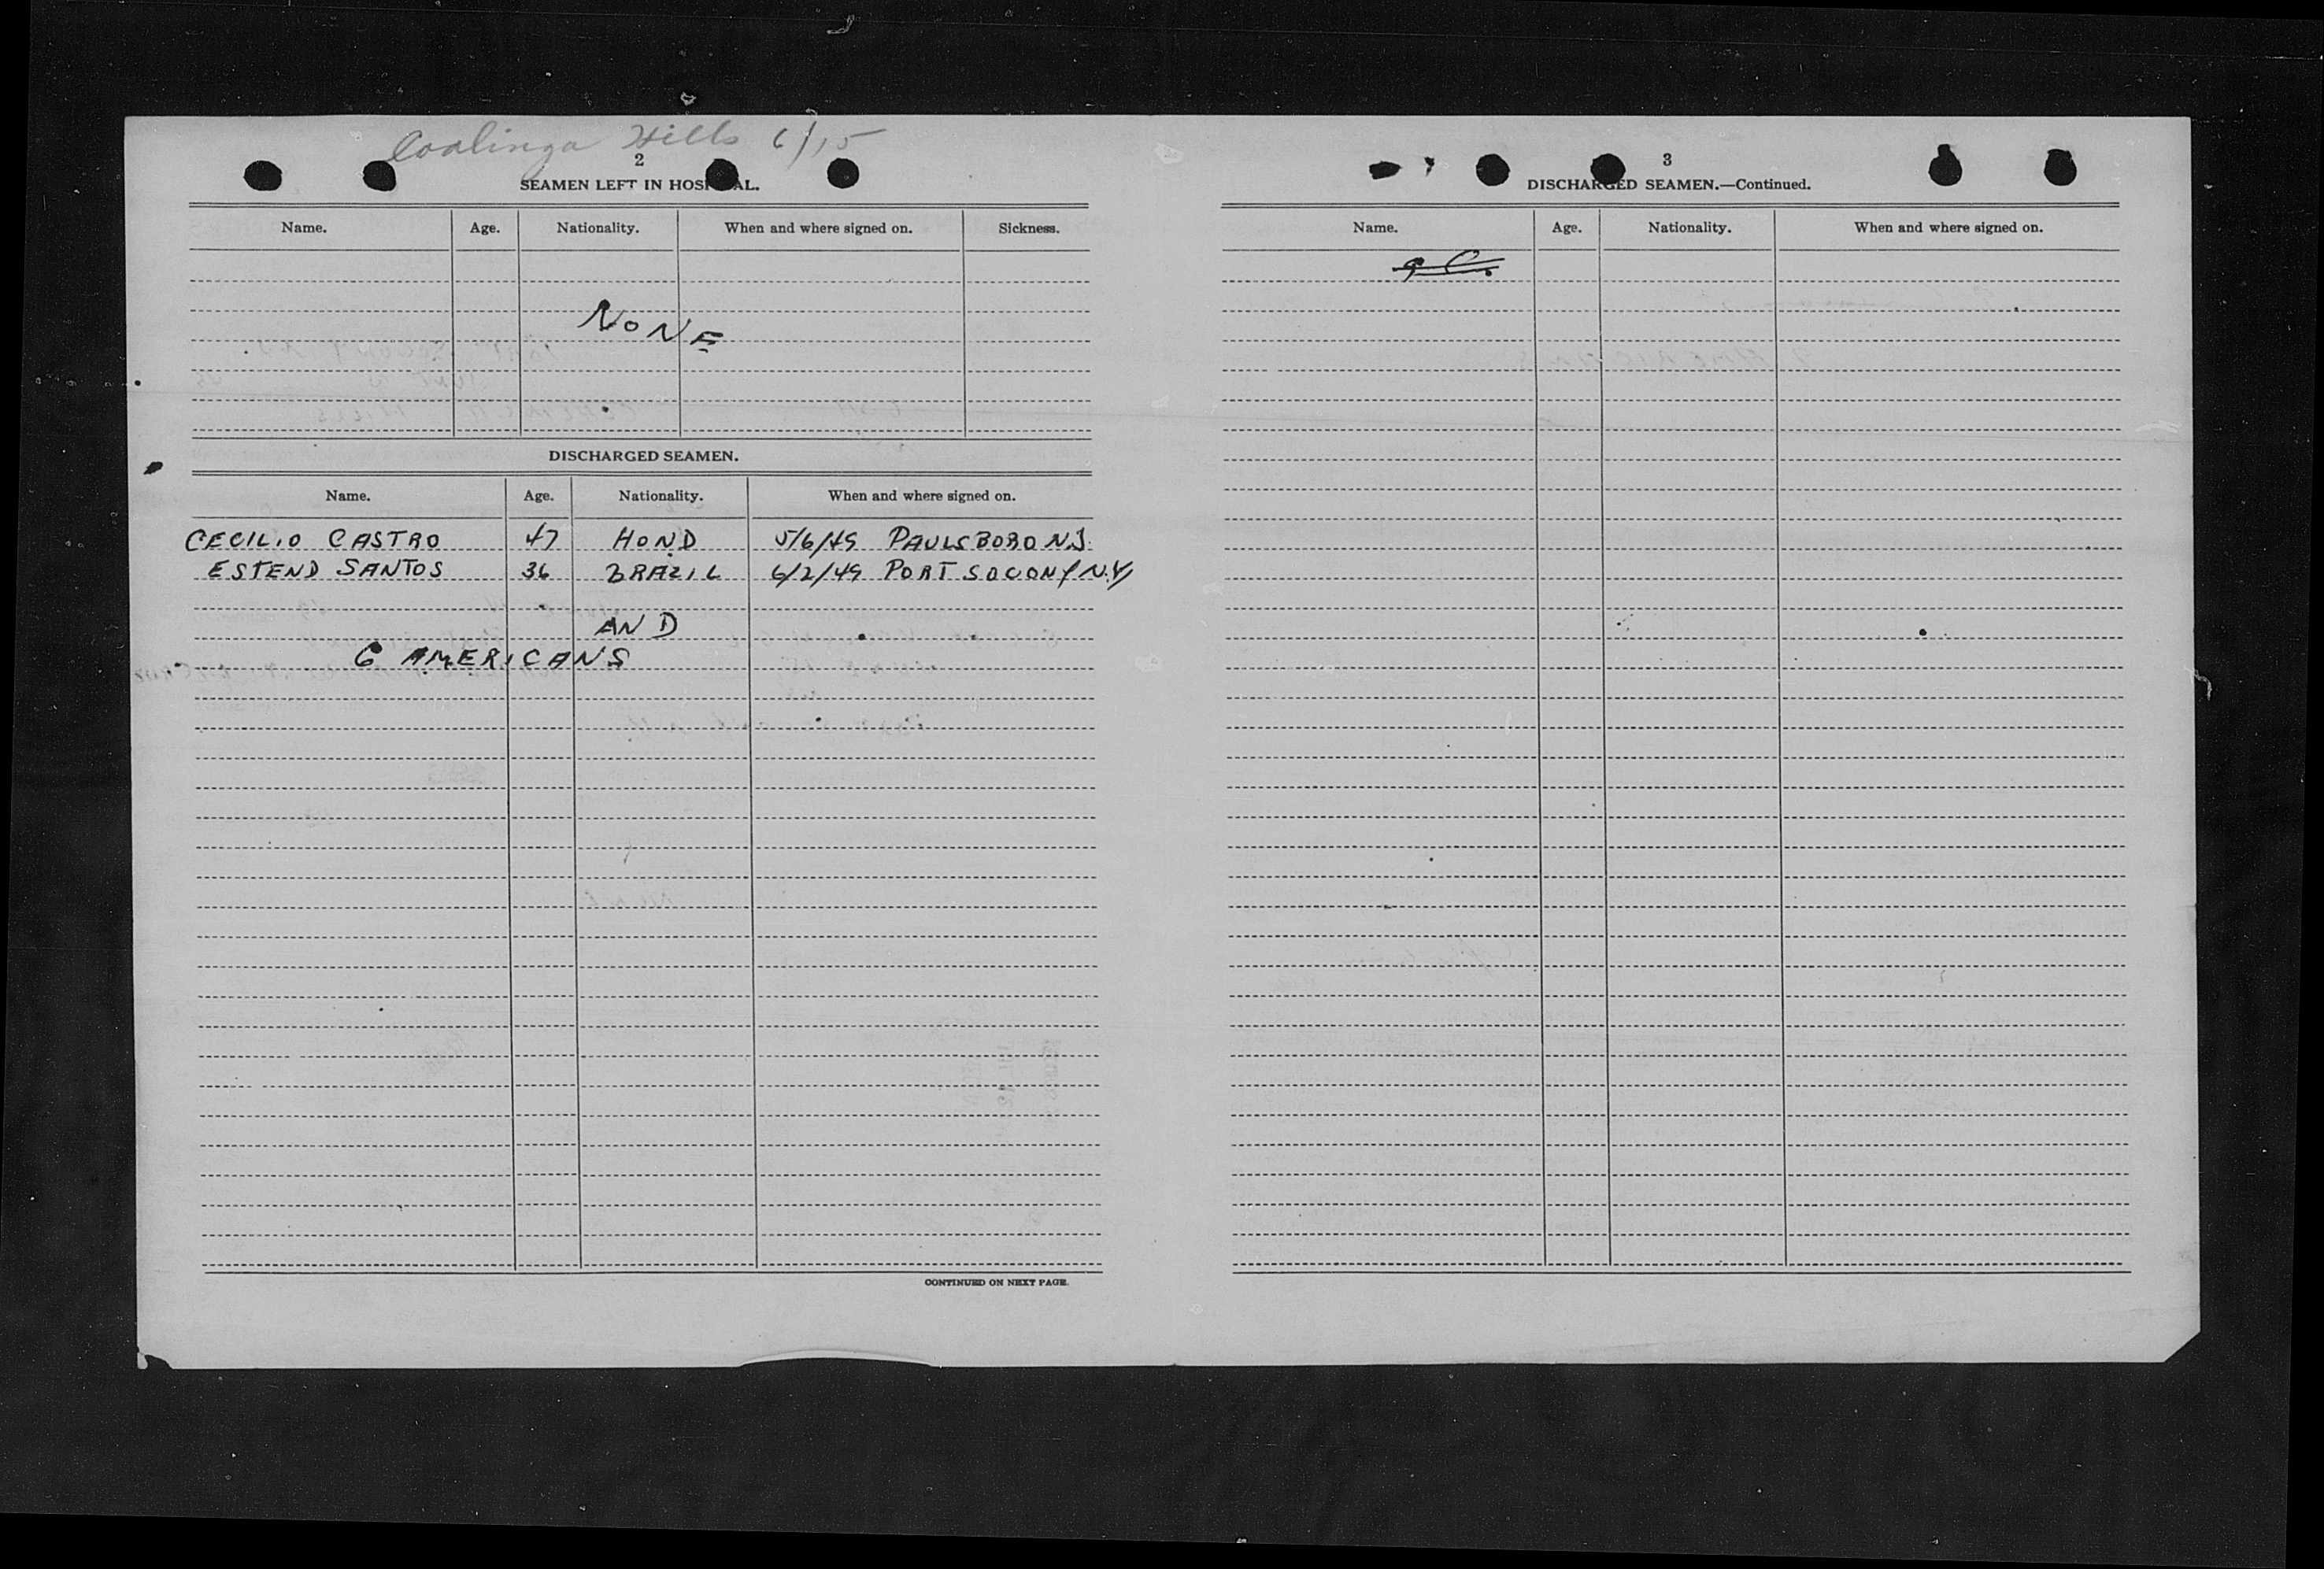 Coalinga Hills 6/15
2
SEAMEN LEFT IN HOSPITAL.
Name. Age. Nationality. When and where signed on. Sickness.
NONE
DISCHARGED SEAMEN.
Name. Age. Nationality. When and where signed on.
CECILIO CASTRO 47 HOND 5/6/49 PAULSBORO N.J.
ESTEND SANTOS 36 BRAZIL 6/2/49 PORT SOCONY N.Y
AND
6 AMERICANS
CONTINUED ON NEXT PAGE.
3
DISCHARGED SEAMEN.—Continued.
Name. Age. Nationality. When and where signed on.